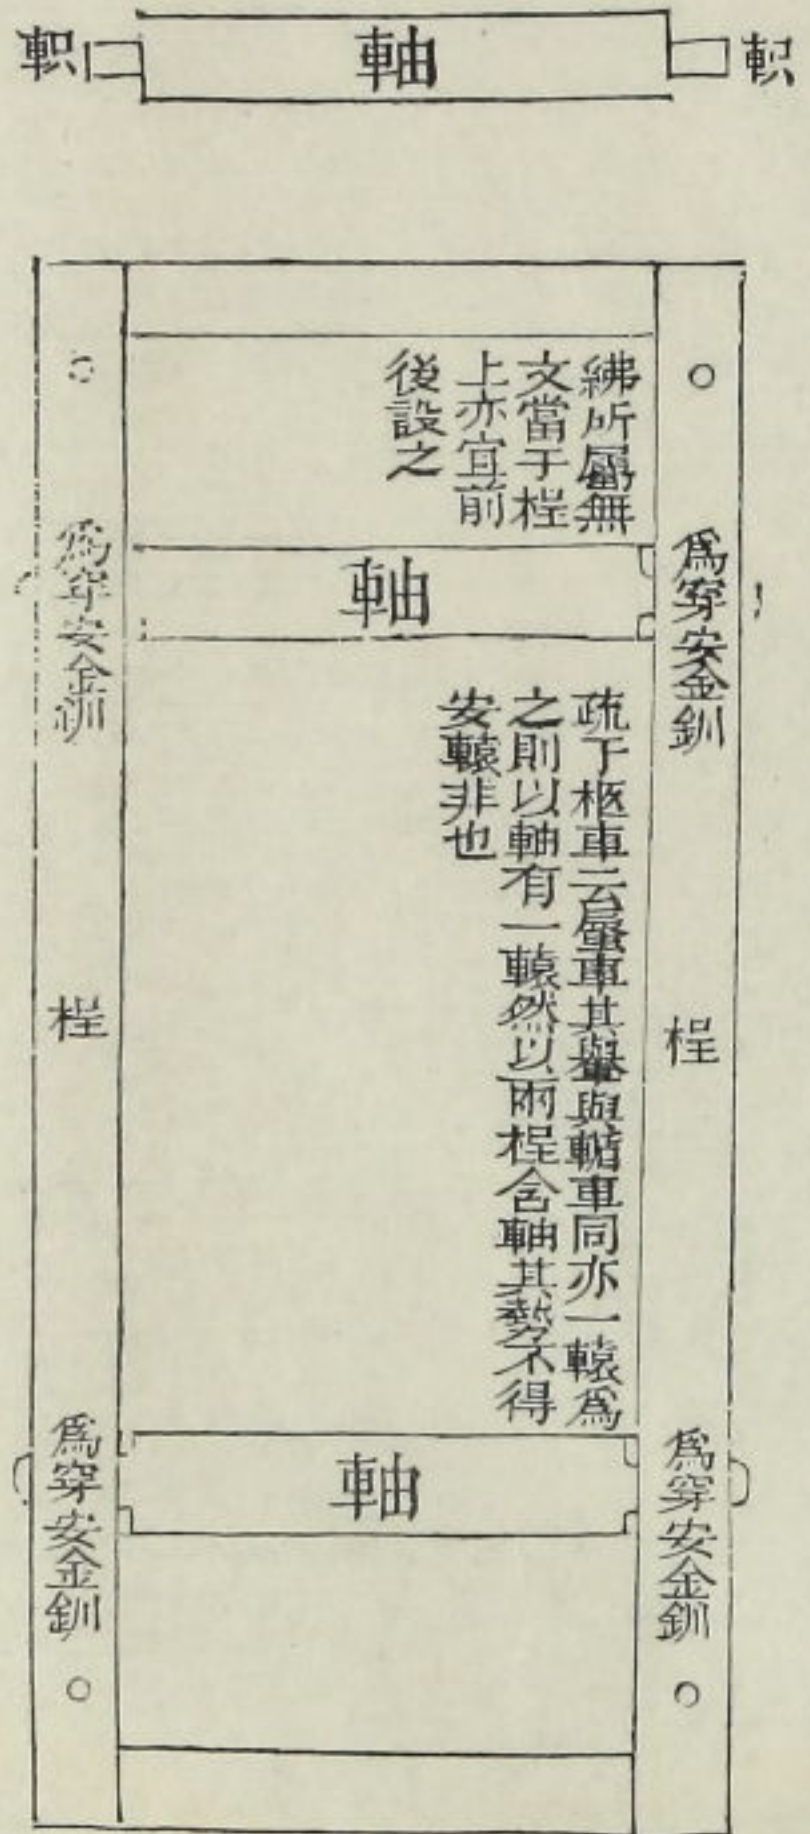 軹
軸
軹
紼所屬無
文當于桯
上亦宜前
後設之
爲穿安金釧
軸
爲穿安金釧
疏于柩車云蜃車其轝與輴車同亦一轅爲
之則以軸有一轅然以兩桯含軸其勢不得
安轅非也
桯
桯
爲穿安金釧
軸
爲穿安金釧